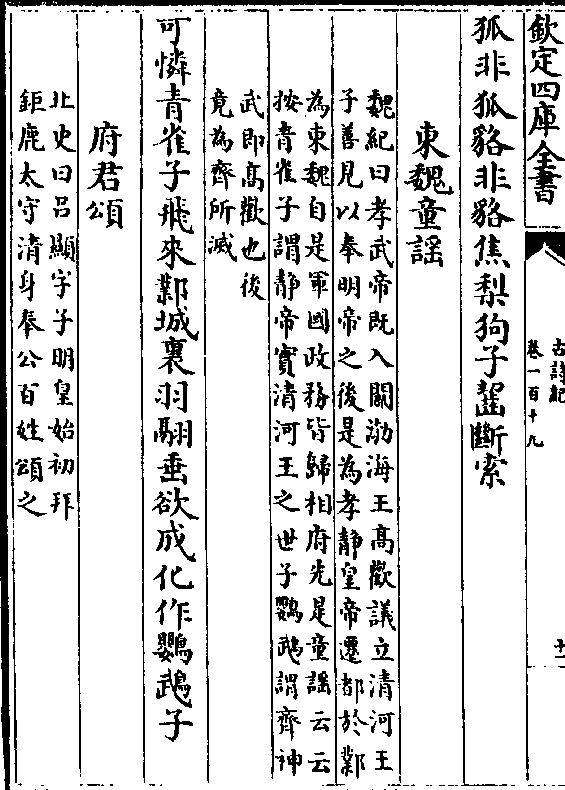 欽定四庫全書
古詩紀
卷一百十九
十二
狐非狐貉非貉焦梨狗子齧斷索
東魏童謡
魏紀曰孝武帝既入關渤海王高歡議立清河王
子善見以奉明帝之後是為孝靜皇帝遷都於鄴
為東魏自是軍國政務皆歸相府先是童謡云云
按青雀子謂靜帝實清河王之世子鸚鵡謂齊神
武即高歡也後
竟為齊所滅
可憐青雀子飛來鄴城裏羽翮垂欲成化作鸚鵡子
府君頌
北史曰吕顯字子明皇始初拜
鉅鹿太守清身奉公百姓頌之